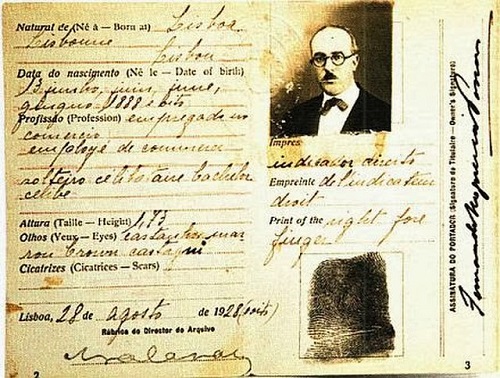 Natural de (Né à — Born at) Lisboa
Lisbonne
Lisbon
Data do nascimento (Né le — Date of birth)
13 junho, juin, june,
giugno 1888 8 oito
Profissão (Profession) empregado no
comercio
employé de commerce
solteiro celibataire bachelor
celibe
Altura (Taille — Height) 1,73
Olhos (Yeux — Eyes) castanhos mar
ron brown castagni
Cicatrizes (Cicatrices — Scars)
Lisboa, 28 de agosto de 1928 (oito)
Rúbrica do Director do Arquivo
2
Impres
indicador direito
Empreinte de l'indicateur
droit
Print of the right fore
finger
3
ASSINATURA DO PORTADOR (Signature du Titulaire — Owner's Signature)
Fernando Nogueira Pessoa